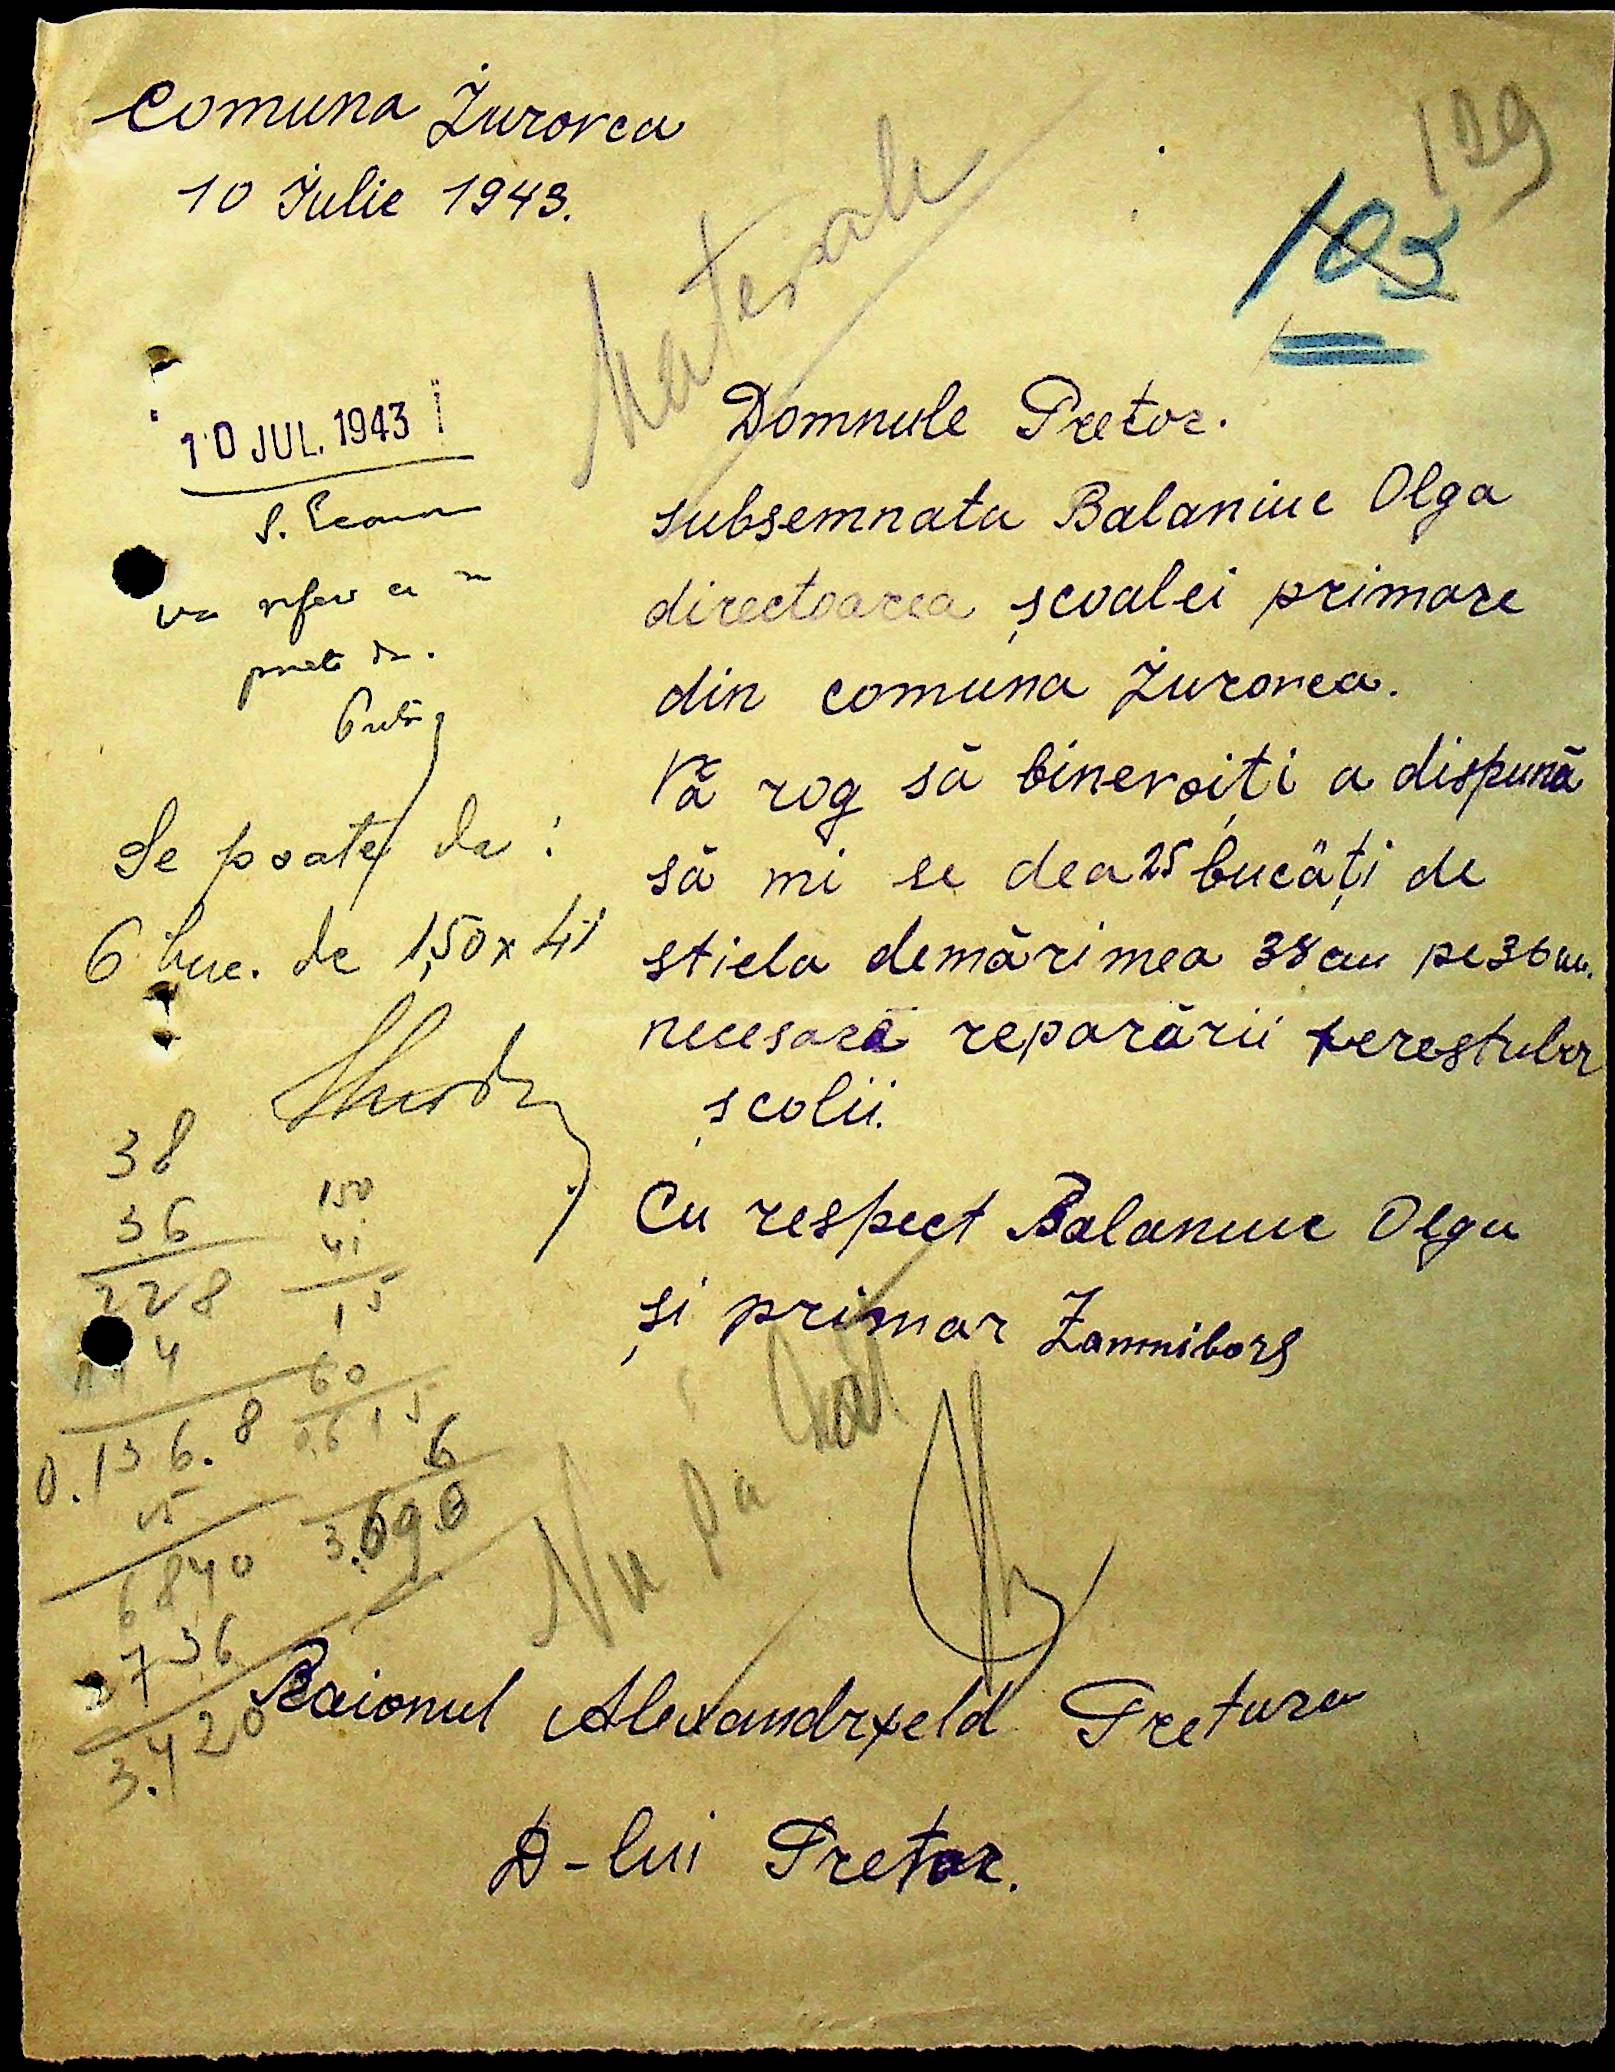 Comuna Jurovca
10 Iulie 1943.
129
103
Materiale
10 JUL. 1943
S. Econom
va refera ce se
poate da.
Pretor
Se poate da:
6 buc. de 1,50 x 41
Domnule Pretor.
subsemnata Balaniuc Olga
directoarea școalei primare
din comuna Jurovca.
Vă rog să binevoiți a dispună
să mi se dea 25 bucăți de
stiela demărimea 38 cm pe 36 cm.
necesară reparării ferestrelor
școlii.
Cu respect Balaniuc Olga
și primar Zamnibors
38
36
228
114
0.136.8
25
6840
2736
3.420
150
41
15
60
0,615
6
3.690
Nu
Raionul Alexandrfeld Pretura
D-lui Pretor.